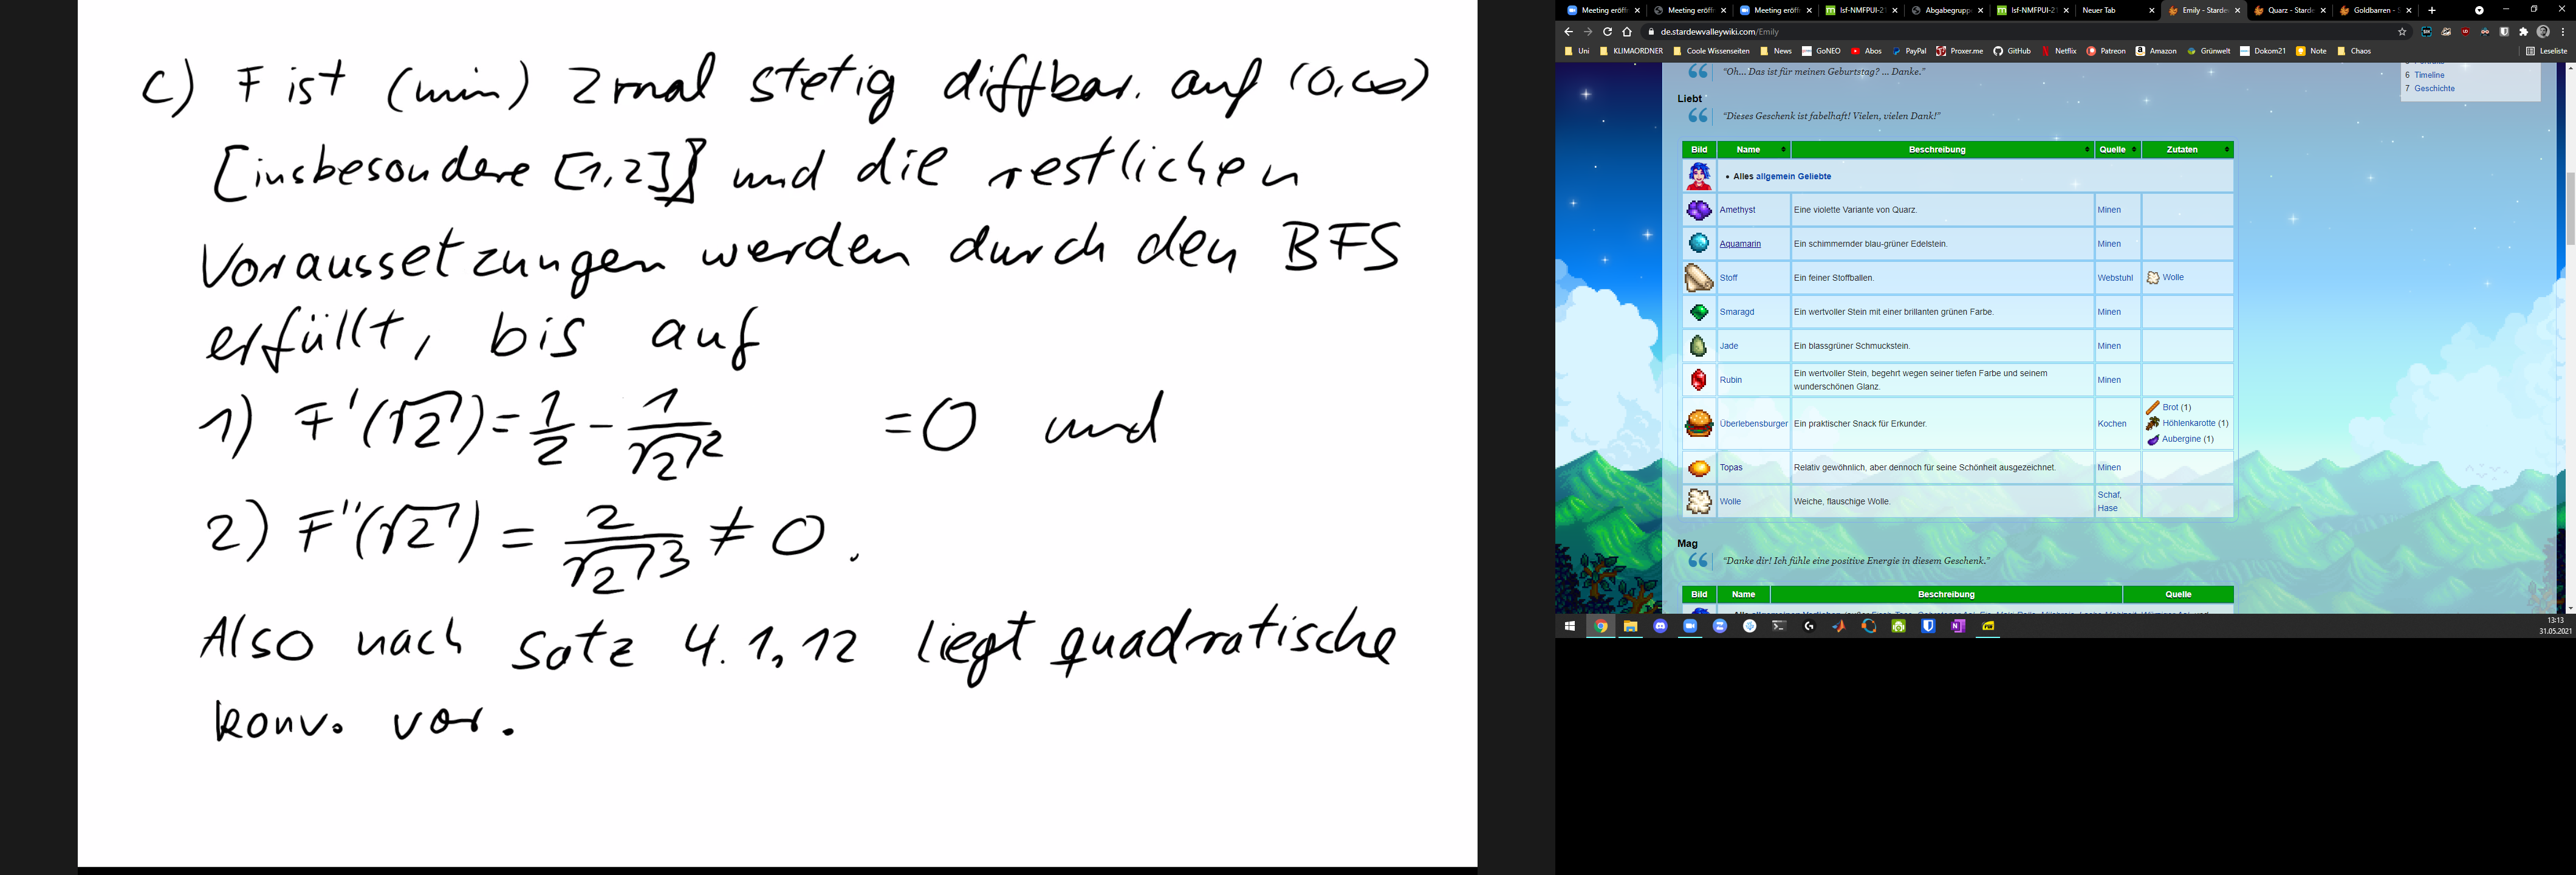 c) F ist (min) 2mal stetig diffbar. auf (0,∞)
[insbesondere [1,2]] und die restlichen
Voraussetzungen werden durch den BFS
erfüllt, bis auf
1) F'(√2) = 1/2 - 1/√2² = 0 und
2) F''(√2) = 2/√2³ ≠ 0.
Also nach Satz 4.1.12 liegt quadratische
Konv. vor.
Meeting eröff Meeting eröff Meeting eröff lsf-NMFPUI-2 Abgabegrupp lsf-NMFPUI-2 Neuer Tab Emily - Stardew Quarz - Stardew Goldbarren - S
de.stardewvalleywiki.com/Emily
Uni KLIMAORDNER Coole Wissenseiten News GoNEO Abos PayPal Proxer.me GitHub Netflix Patreon Amazon Grünwelt Dokom21 Note Chaos Leseliste
"Oh... Das ist für meinen Geburtstag? ... Danke."
6 Timeline
7 Geschichte
Liebt
"Dieses Geschenk ist fabelhaft! Vielen, vielen Dank!"
Bild Name Beschreibung Quelle Zutaten
• Alles allgemein Geliebte
Amethyst Eine violette Variante von Quarz. Minen
Aquamarin Ein schimmernder blau-grüner Edelstein. Minen
Stoff Ein feiner Stoffballen. Webstuhl Wolle
Smaragd Ein wertvoller Stein mit einer brillanten grünen Farbe. Minen
Jade Ein blassgrüner Schmuckstein. Minen
Rubin Ein wertvoller Stein, begehrt wegen seiner tiefen Farbe und seinem
wunderschönen Glanz. Minen
Überlebensburger Ein praktischer Snack für Erkunder. Kochen Brot (1)
Höhlenkarotte (1)
Aubergine (1)
Topas Relativ gewöhnlich, aber dennoch für seine Schönheit ausgezeichnet. Minen
Wolle Weiche, flauschige Wolle. Schaf,
Hase
Mag
"Danke dir! Ich fühle eine positive Energie in diesem Geschenk."
Bild Name Beschreibung Quelle
13:13
31.05.2021